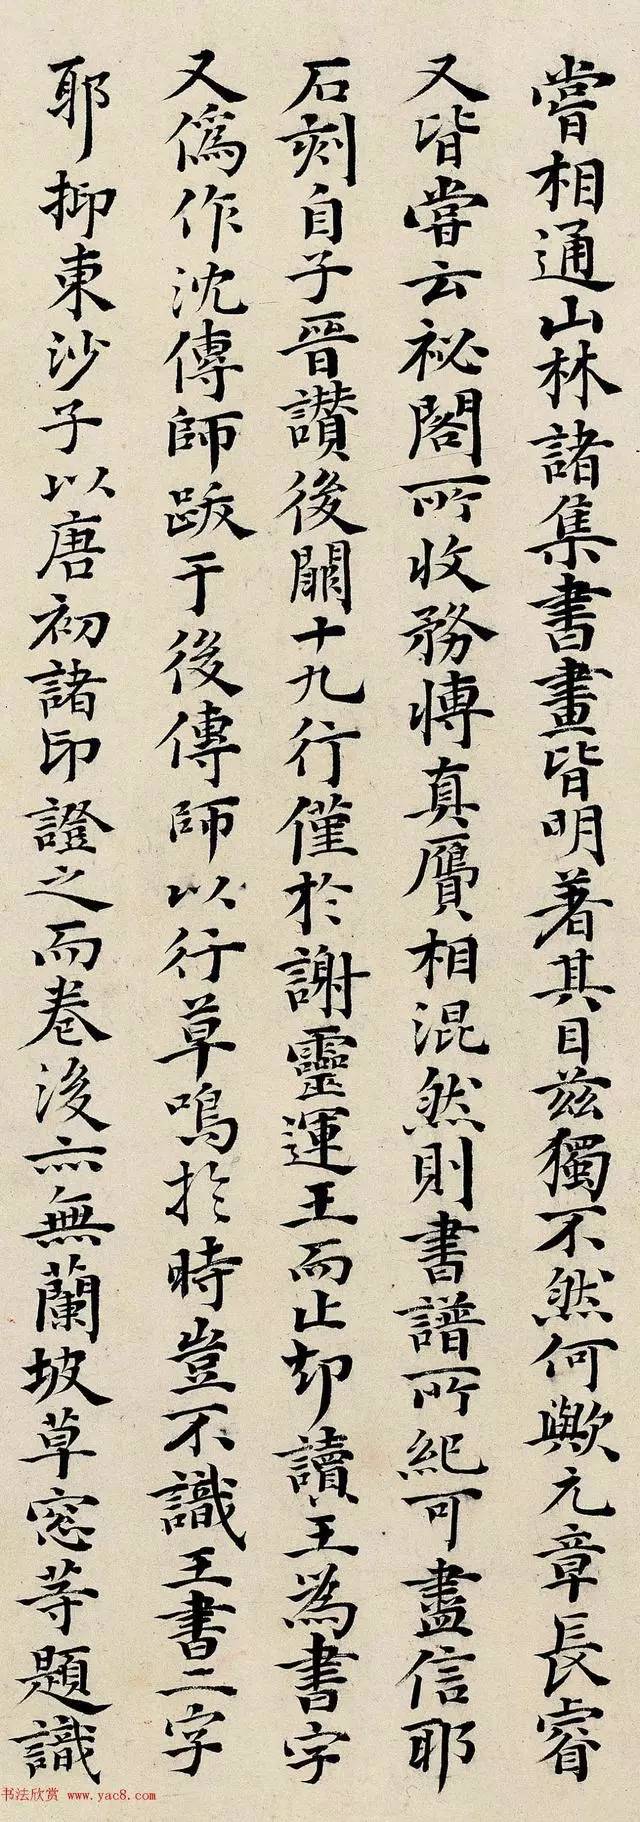 嘗相通山林諸集書畫皆明著其目兹獨不然何歟元章長睿
又皆嘗云祕閣所收務博真贋相混然則書譜所紀可盡信耶
石刻自子晉讚後闕十九行僅於謝靈運王而止却讀王為書字
又偽作沈傳師跋于後傳師以行草鳴於時豈不識王書二字
耶抑東沙子以唐初諸印證之而卷後亦無蘭坡草窓等題識
书法欣赏 www.yac8.com